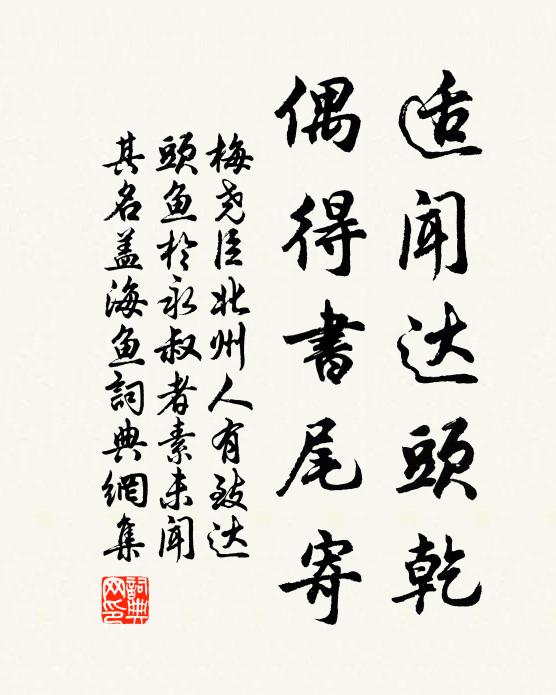 适闻达頭乾
偶得書尾寄
梅尧臣北州人有致达
頭鱼於永叔者素未闻
其名盖海鱼詞典網集
詞典
网印